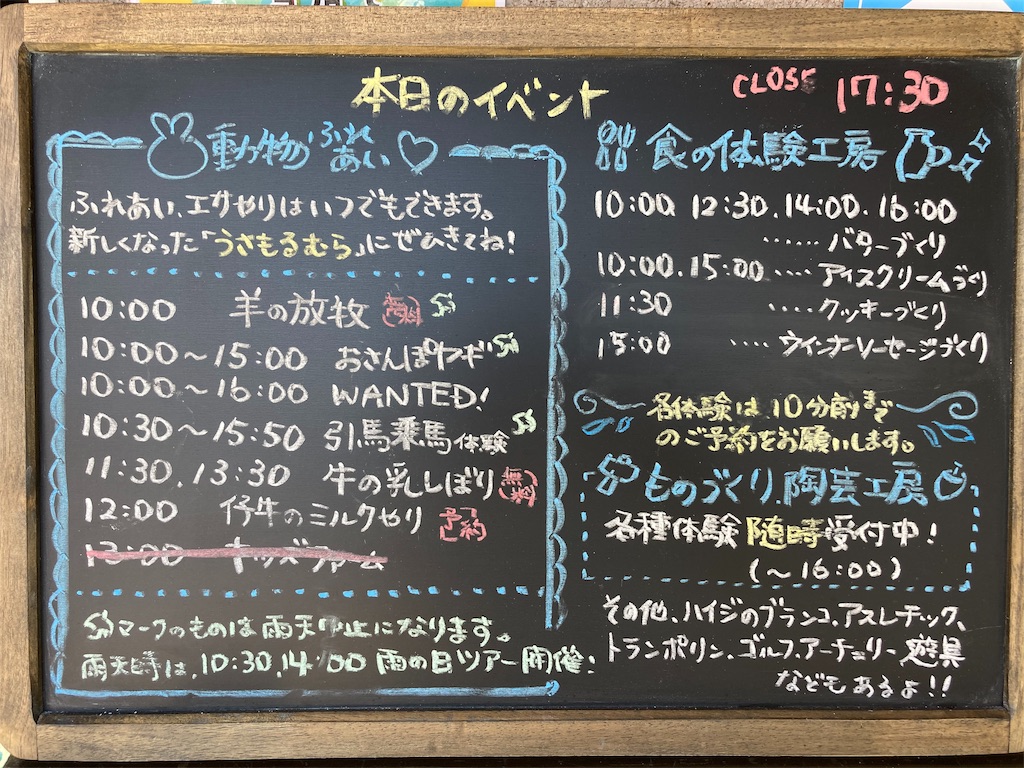 本日のイベント
CLOSE 17:30
動物ふれあい
ふれあい、エサやりはいつでもできます。
新しくなった「うさもるむら」にぜひきてね!
10:00 羊の放牧 無料
10:00〜15:00 おさんぽヤギ
10:00〜16:00 WANTED!
10:30〜15:50 引馬乗馬体験
11:30.13:30 牛の乳しぼり 無料
12:00 仔牛のミルクやり 予約
13:00 キッズファーム
マークのものは雨天中止になります。
雨天時は、10:30.14:00 雨の日ツアー開催!
食の体験工房
10:00 12:30.14:00.16:00
‥‥‥バターづくり
10:00.15:00‥‥アイスクリームづくり
11:30 ‥‥クッキーづくり
15:00 ‥‥ウインナーソーセージづくり
各体験は10分前まで
のご予約をお願いします。
ものづくり、陶芸工房
各種体験随時受付中!
(〜16:00)
その他、ハイジのブランコ、アスレチック、
トランポリン、ゴルフ、アーチェリー 遊具
などもあるよ!!